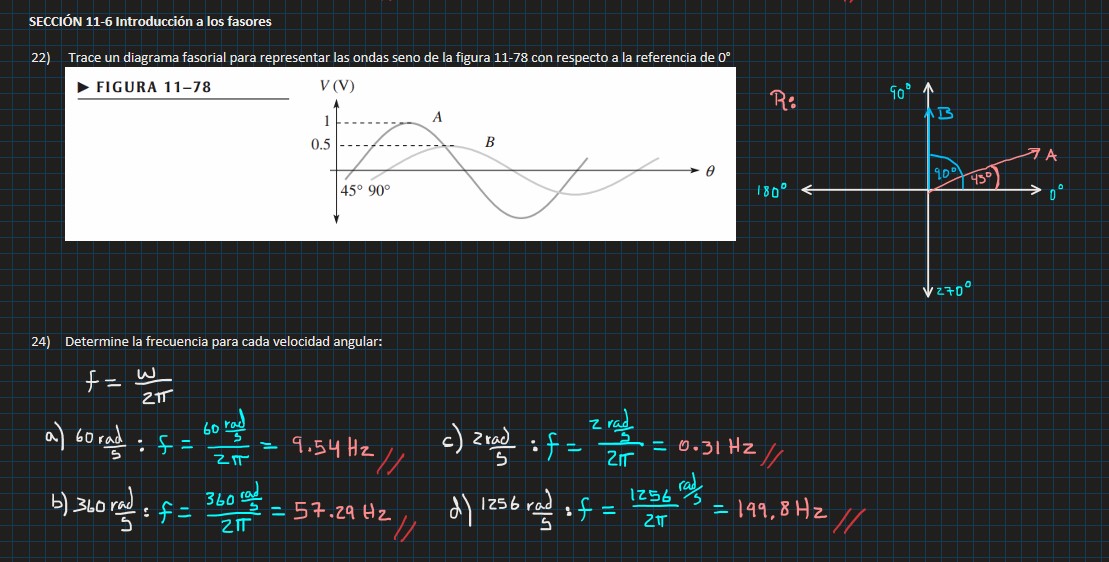 SECCIÓN 11-6 Introducción a los fasores
22) Trace un diagrama fasorial para representar las ondas seno de la figura 11-78 con respecto a la referencia de 0°
▶ FIGURA 11–78
V (V)
1
0.5
A
B
θ
45° 90°
R:
90°
B
A
90°
45°
180°
0°
270°
24) Determine la frecuencia para cada velocidad angular:
f = ω/2π
a) 60 rad/s : f = 60 rad/s / 2π = 9.54 Hz //
c) 2 rad/s : f = 2 rad/s / 2π = 0.31 Hz //
b) 360 rad/s : f = 360 rad/s / 2π = 57.29 Hz //
d) 1256 rad/s : f = 1256 rad/s / 2π = 199.8 Hz //